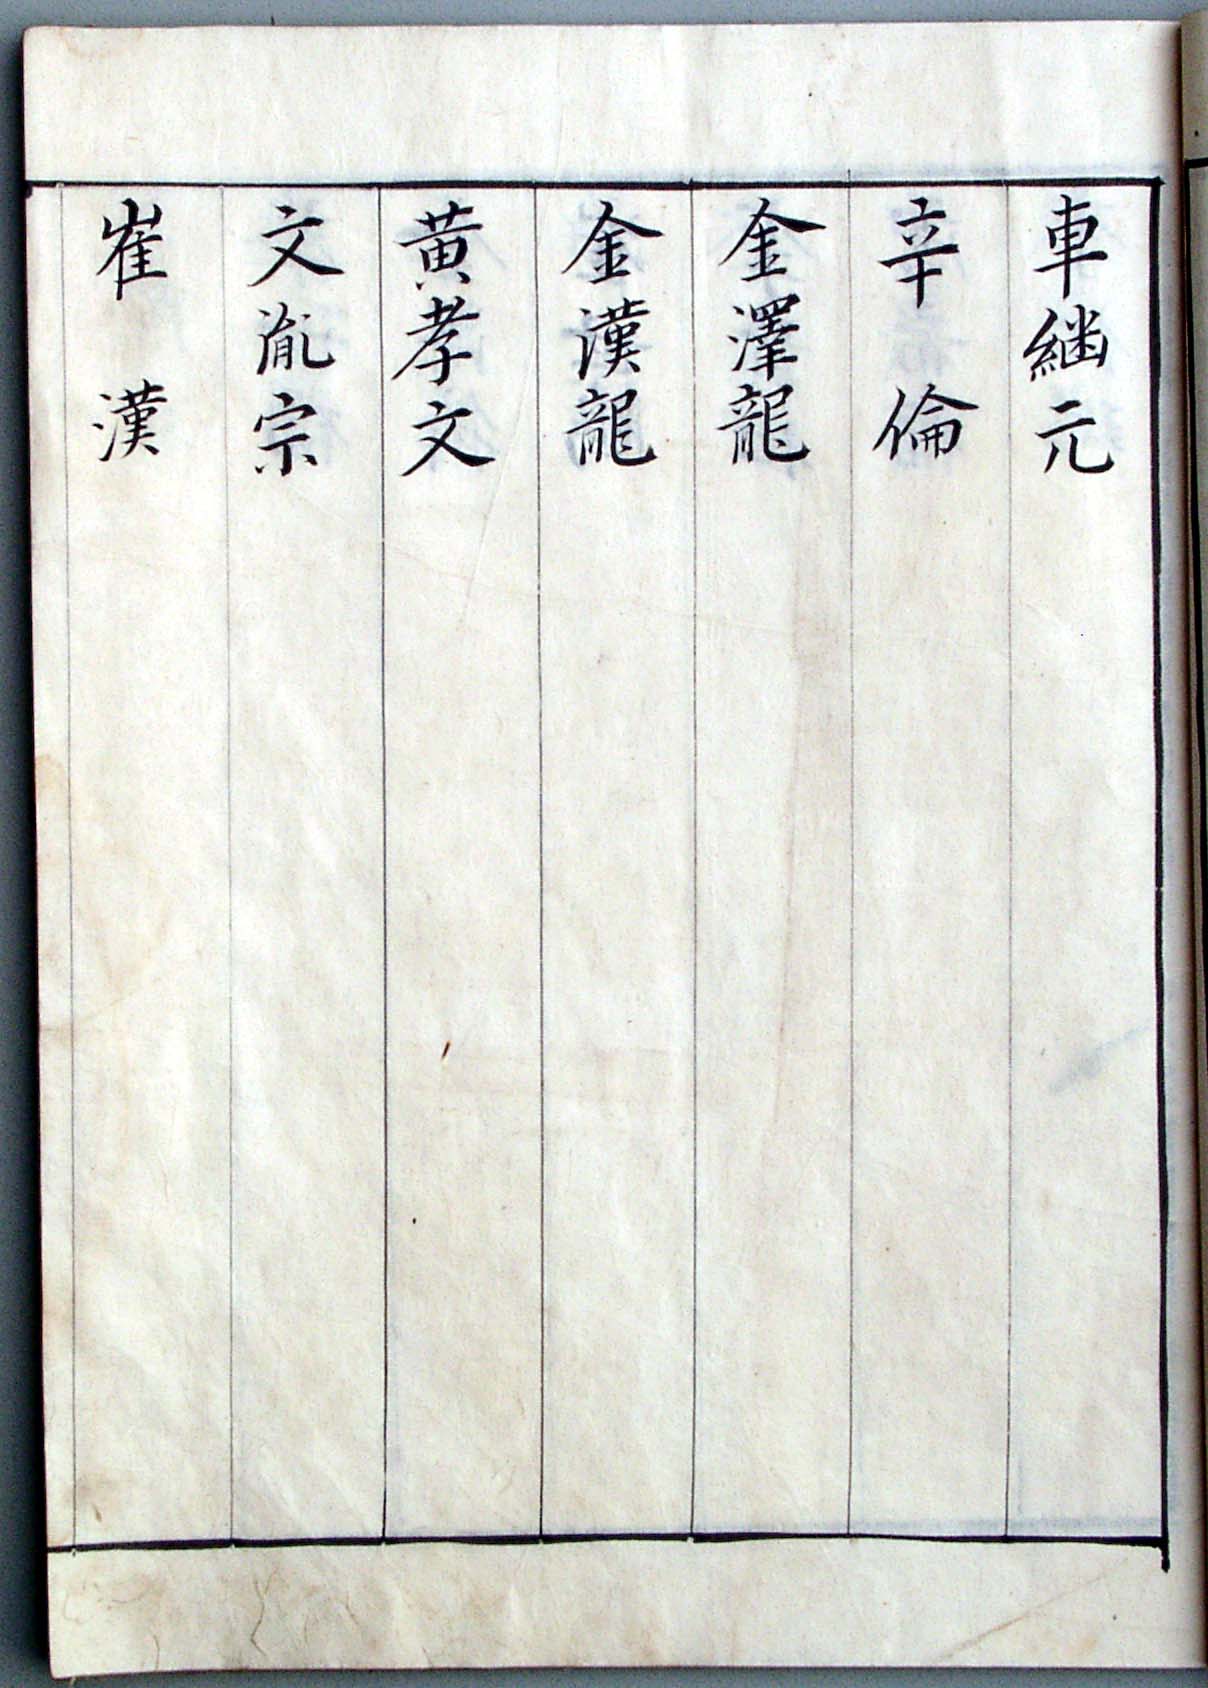 車継元
辛倫
金澤龍
金漢龍
黄孝文
文胤宗
崔漢